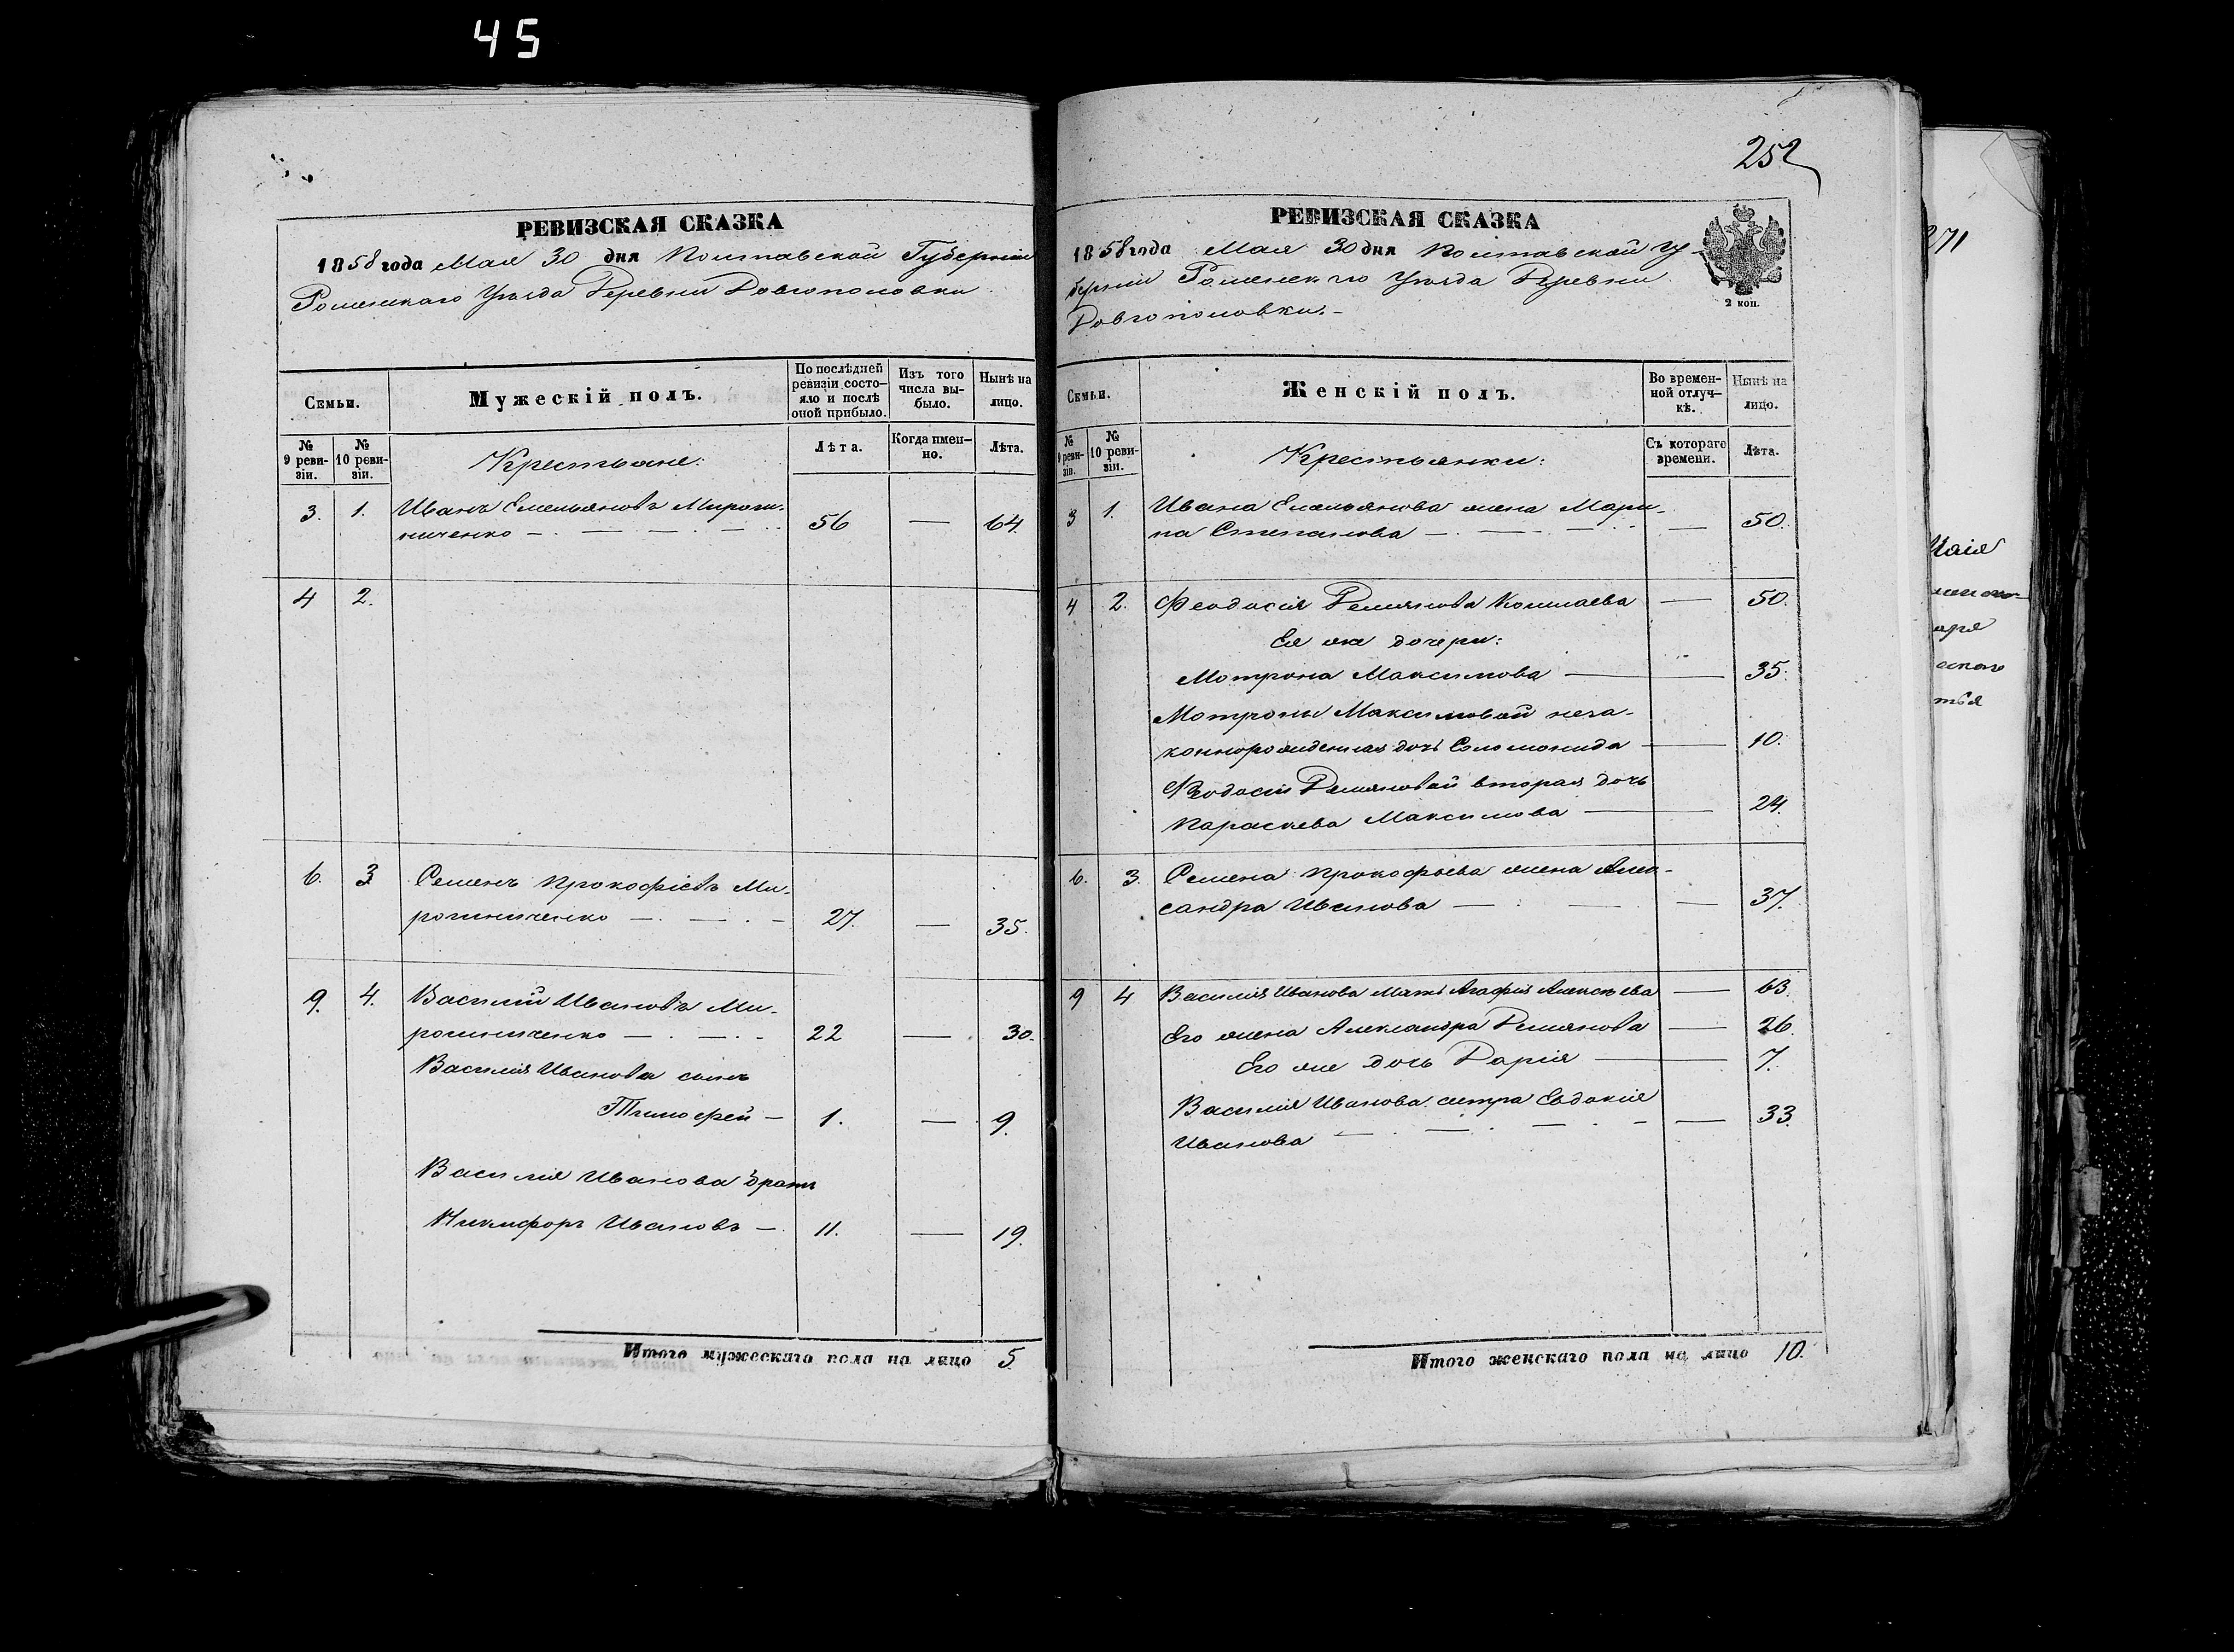 45
РЕВИЗСКАЯ СКАЗКА
1858 года Мая 30 дня Полтавской Губерніи
Роменскаго Уѣзда Деревни Довгополовки
Семьи.
Мужескій полъ.
По послѣдней ревизіи состояло и послѣ оной прибыло.
Изъ того числа выбыло.
Нынѣ на лицо.
№ 9 ревизіи.
№ 10 ревизіи.
Крестьяне:
Лѣта.
Когда именно.
Лѣта.
3. 1. Иванъ Емельяновъ Мирошниченко — 56 — 64
4 2.
6. 3 Семенъ Прокофіевъ Мирошниченко — 27. — 35.
9. 4. Василій Ивановъ Мирошниченко — 22 — 30.
Василія Иванова сынъ
Тимофей — 1. — 9.
Василія Иванова братъ
Никифоръ Ивановъ — 11. — 19.
Итого мужескаго пола на лицо 5.
252
РЕВИЗСКАЯ СКАЗКА
1858 года Мая 30 дня Полтавской Гу-
берніи Роменскаго Уѣзда Деревни
Довгополовки.-
2 коп.
Семьи.
Женскій полъ.
Во временной отлучкѣ.
Нынѣ на лицо.
№ 9 ревизіи.
№ 10 ревизіи.
Крестьянки:
Съ котораго времени.
Лѣта.
3 1. Ивана Емельянова жена Мари-
на Степанова — — 50.
4 2. Феодосія Демянова — 50.
Ея же дочери:
Мотрона Максимова — 35.
Мотроны Максимовой неза-
коннорожденная дочь Соломонида — 10.
Феодосіи Демяновой вторая дочь
Параскева Максимова — 24.
6. 3. Семена Прокофьева жена
Иванова — — 37.
9 4 Василія Иванова мать Агафія Алексѣева — 63.
Его жена Александра Демянова — 26.
Его же дочь Дарія — 7.
Василія Иванова сестра Евдокія
Иванова — — 33.
Итого женскаго пола на лицо 10.
271